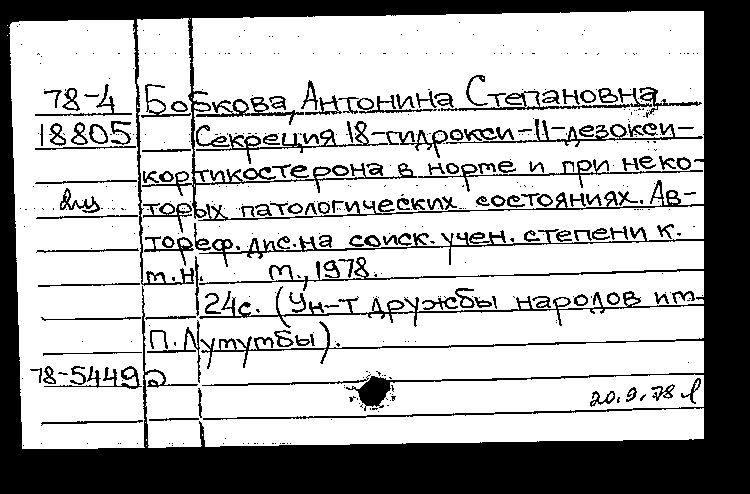 78-4 Бобкова, Антонина Степановна.
18805 Секреция 18-гидрокси-11-дезокси-
кортикостерона в норме и при неко-
торых патологических состояниях. Ав-
тореф. дис. на соиск. учен. степени к.
м.н. М., 1978.
24с. (Ун-т дружбы народов им.
П. Лумумбы).
78-5449
20.9.78